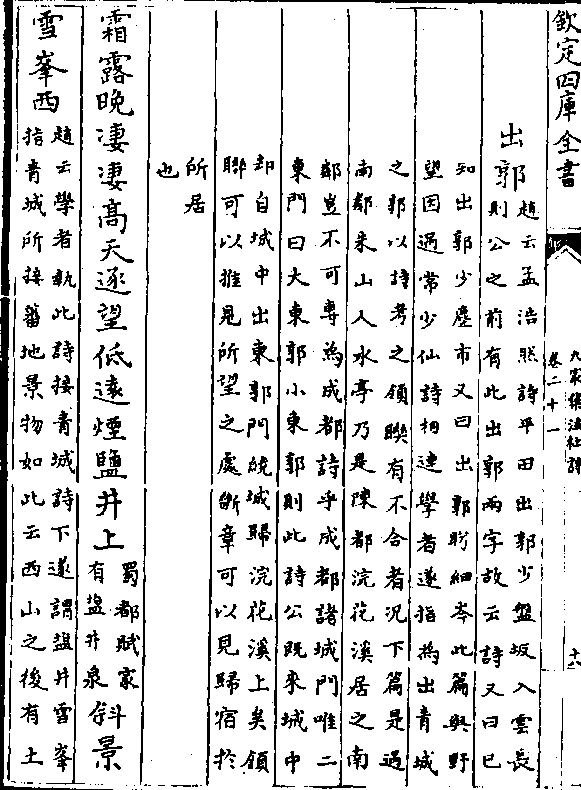 欽定四庫全書
九家集注杜詩
卷二十一
出郭
趙云孟浩然詩平田出郭少盤坂入雲長
則公之前有此出郭兩字故云詩又曰已
知出郭少塵市又曰出郭眄細岑此篇與野
望因過常少仙詩相連學者遂指為出青城
之郭以詩考之頷聯有不合者況下篇是過
南鄰朱山人水亭乃是陳都浣花溪居之南
鄰豈不可專為成都詩乎成都諸城門唯二
東門曰大東郭小東郭則此詩公既來城中
却自城中出東郭門繞城歸浣花溪上矣頷
聯可以推見所望之處斷章可以見歸宿於
所居
也
霜露晚凄凄高天逐望低遠煙鹽井上
蜀都賦家
有盐井泉
斜景
雪峯西
趙云學者執此詩接青城詩下遂謂盐井雪峯
指青城所接蕃地景物如此云西山之後有土